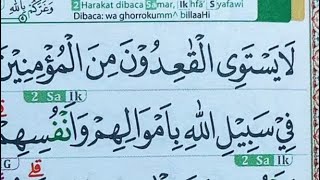 وَغَرَّكُمْ بِاللّٰهِ
2 Harakat dibaca Samar, Ikhfā' Syafawi
Dibaca: wa ghorrokumm^ billaaHi
لَا يَسْتَوِى الْقٰعِدُوْنَ مِنَ الْمُؤْمِنِيْنَ
2 Sa Ik
فِيْ سَبِيْلِ اللّٰهِ بِاَمْوَالِهِمْ وَاَنْفُسِهِمْ
2 Sa Ik
G
قلى